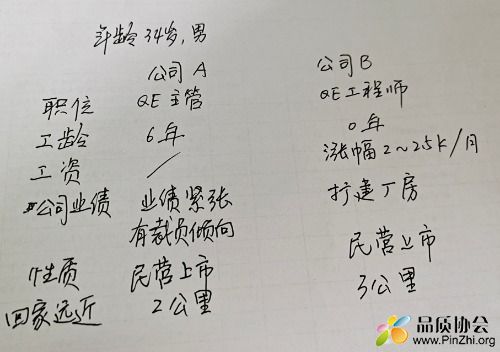 年龄34岁,男
公司A 公司B
职位 QE主管 QE工程师
工龄 6年 0年
工资 / 涨幅2~2.5K/月
公司业绩 业绩紧张 扩建厂房
有裁员倾向
性质 民营上市 民营上市
回家远近 2公里 3公里
品质协会
www.PinZhi.org